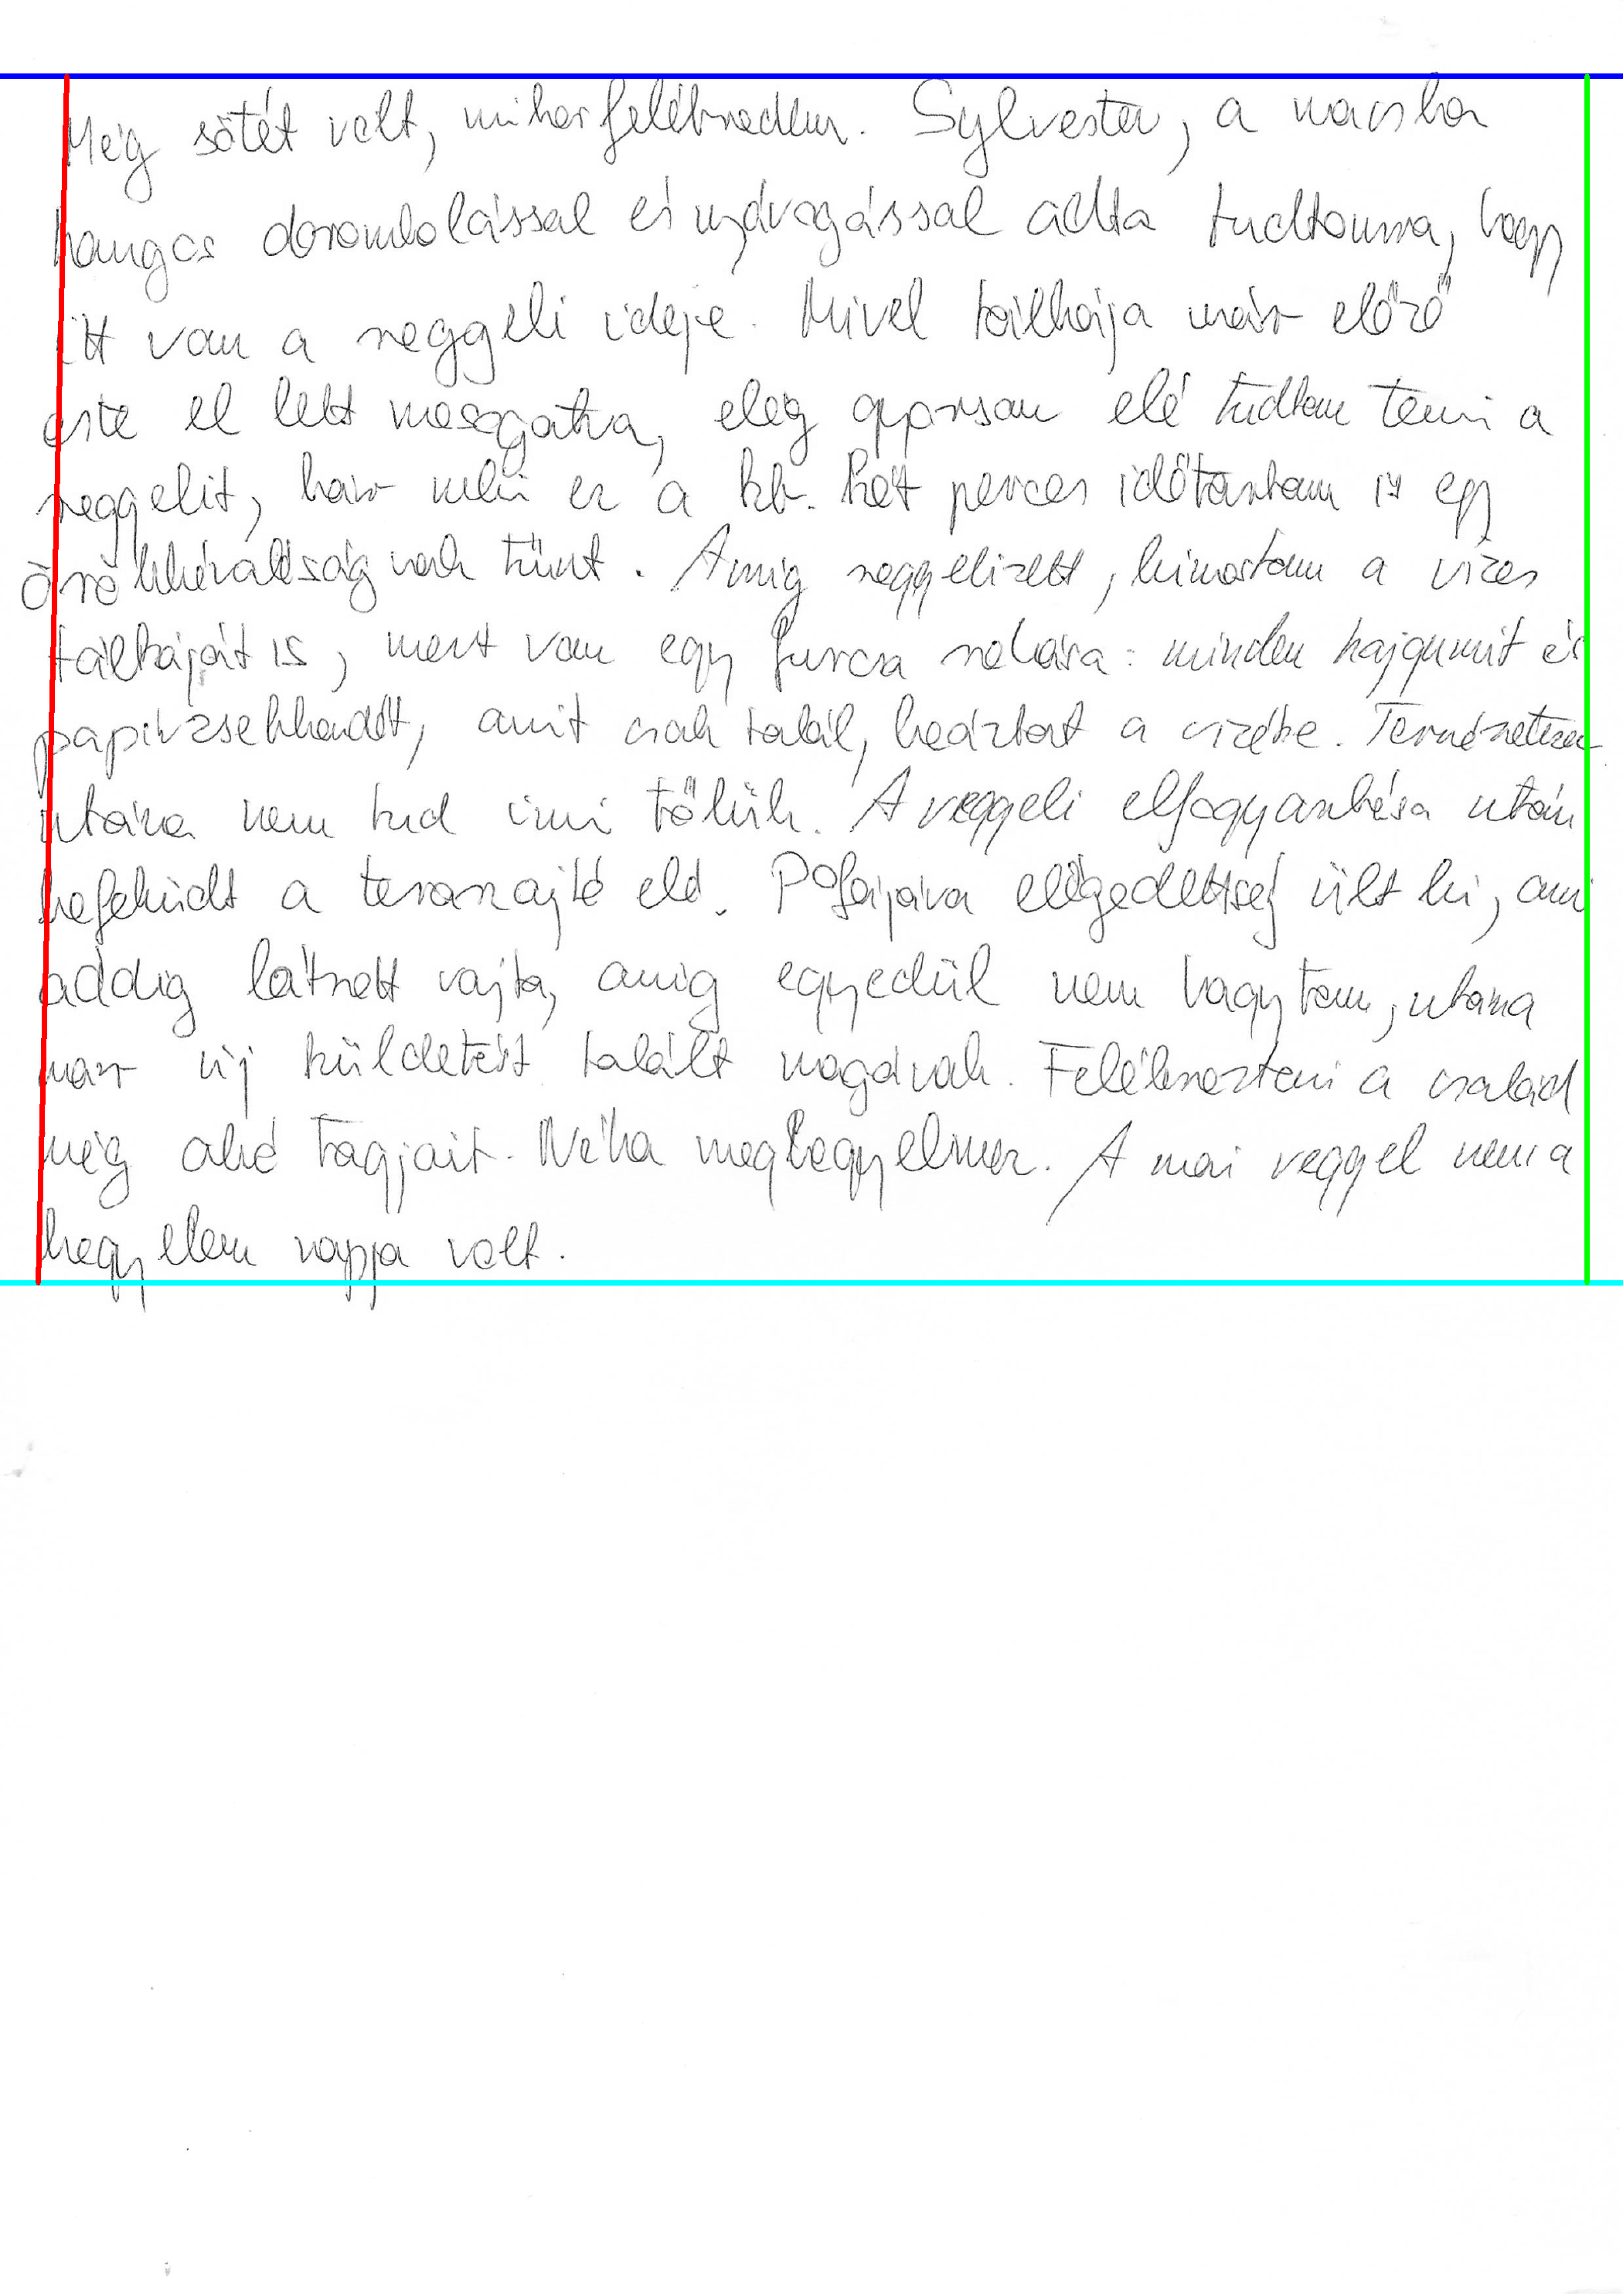 Még sötét volt, mikor felébredtem. Sylvester, a macska
hangos dorombolással és nyávogással adta tudtomra, hogy
itt van a reggeli ideje. Mivel tálkája már előző
este el lett mosogatva, elég gyorsan elé tudtam tenni a
reggelit, bár neki ez a kb. két perces időtartam is egy
örökkévalóságnak tűnt. Amíg reggelizett, kimostam a vizes
tálkáját is, mert van egy furcsa szokása: minden hajgumit és
papírzsebkendőt, amit csak talál, beáztat a vizébe. Természetesen
utána nem tud inni tőlük. A reggeli elfogyasztása után
befeküdt a teraszajtó elé. Pofájára elégedettség ült ki, ami
addig látszott rajta, amíg egyedül nem hagytam, utána
már új küldetést talált magának. Felébreszteni a család
még alvó tagjait. Néha megkegyelmez. A mai reggel nem a
kegyelem napja volt.